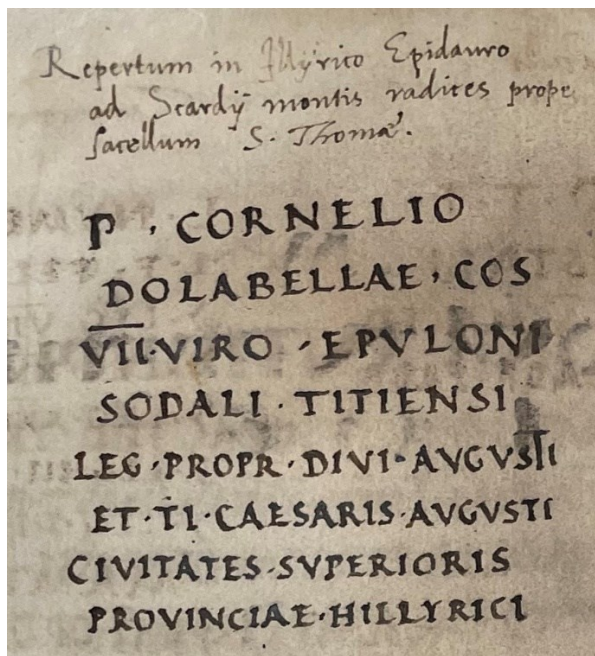 Repertum in Illyrico Epidauro
ad Scardÿ montis radices prope
sacellum S. Thomæ.
P · CORNELIO
DOLABELLAE · COS
VII·VIRO · EPVLONI
SODALI · TITIENSI
LEG · PROPR · DIVI · AVGVSTI
ET · TI · CAESARIS · AVGVSTI
CIVITATES · SVPERIORIS
PROVINCIAE · HILLYRICI